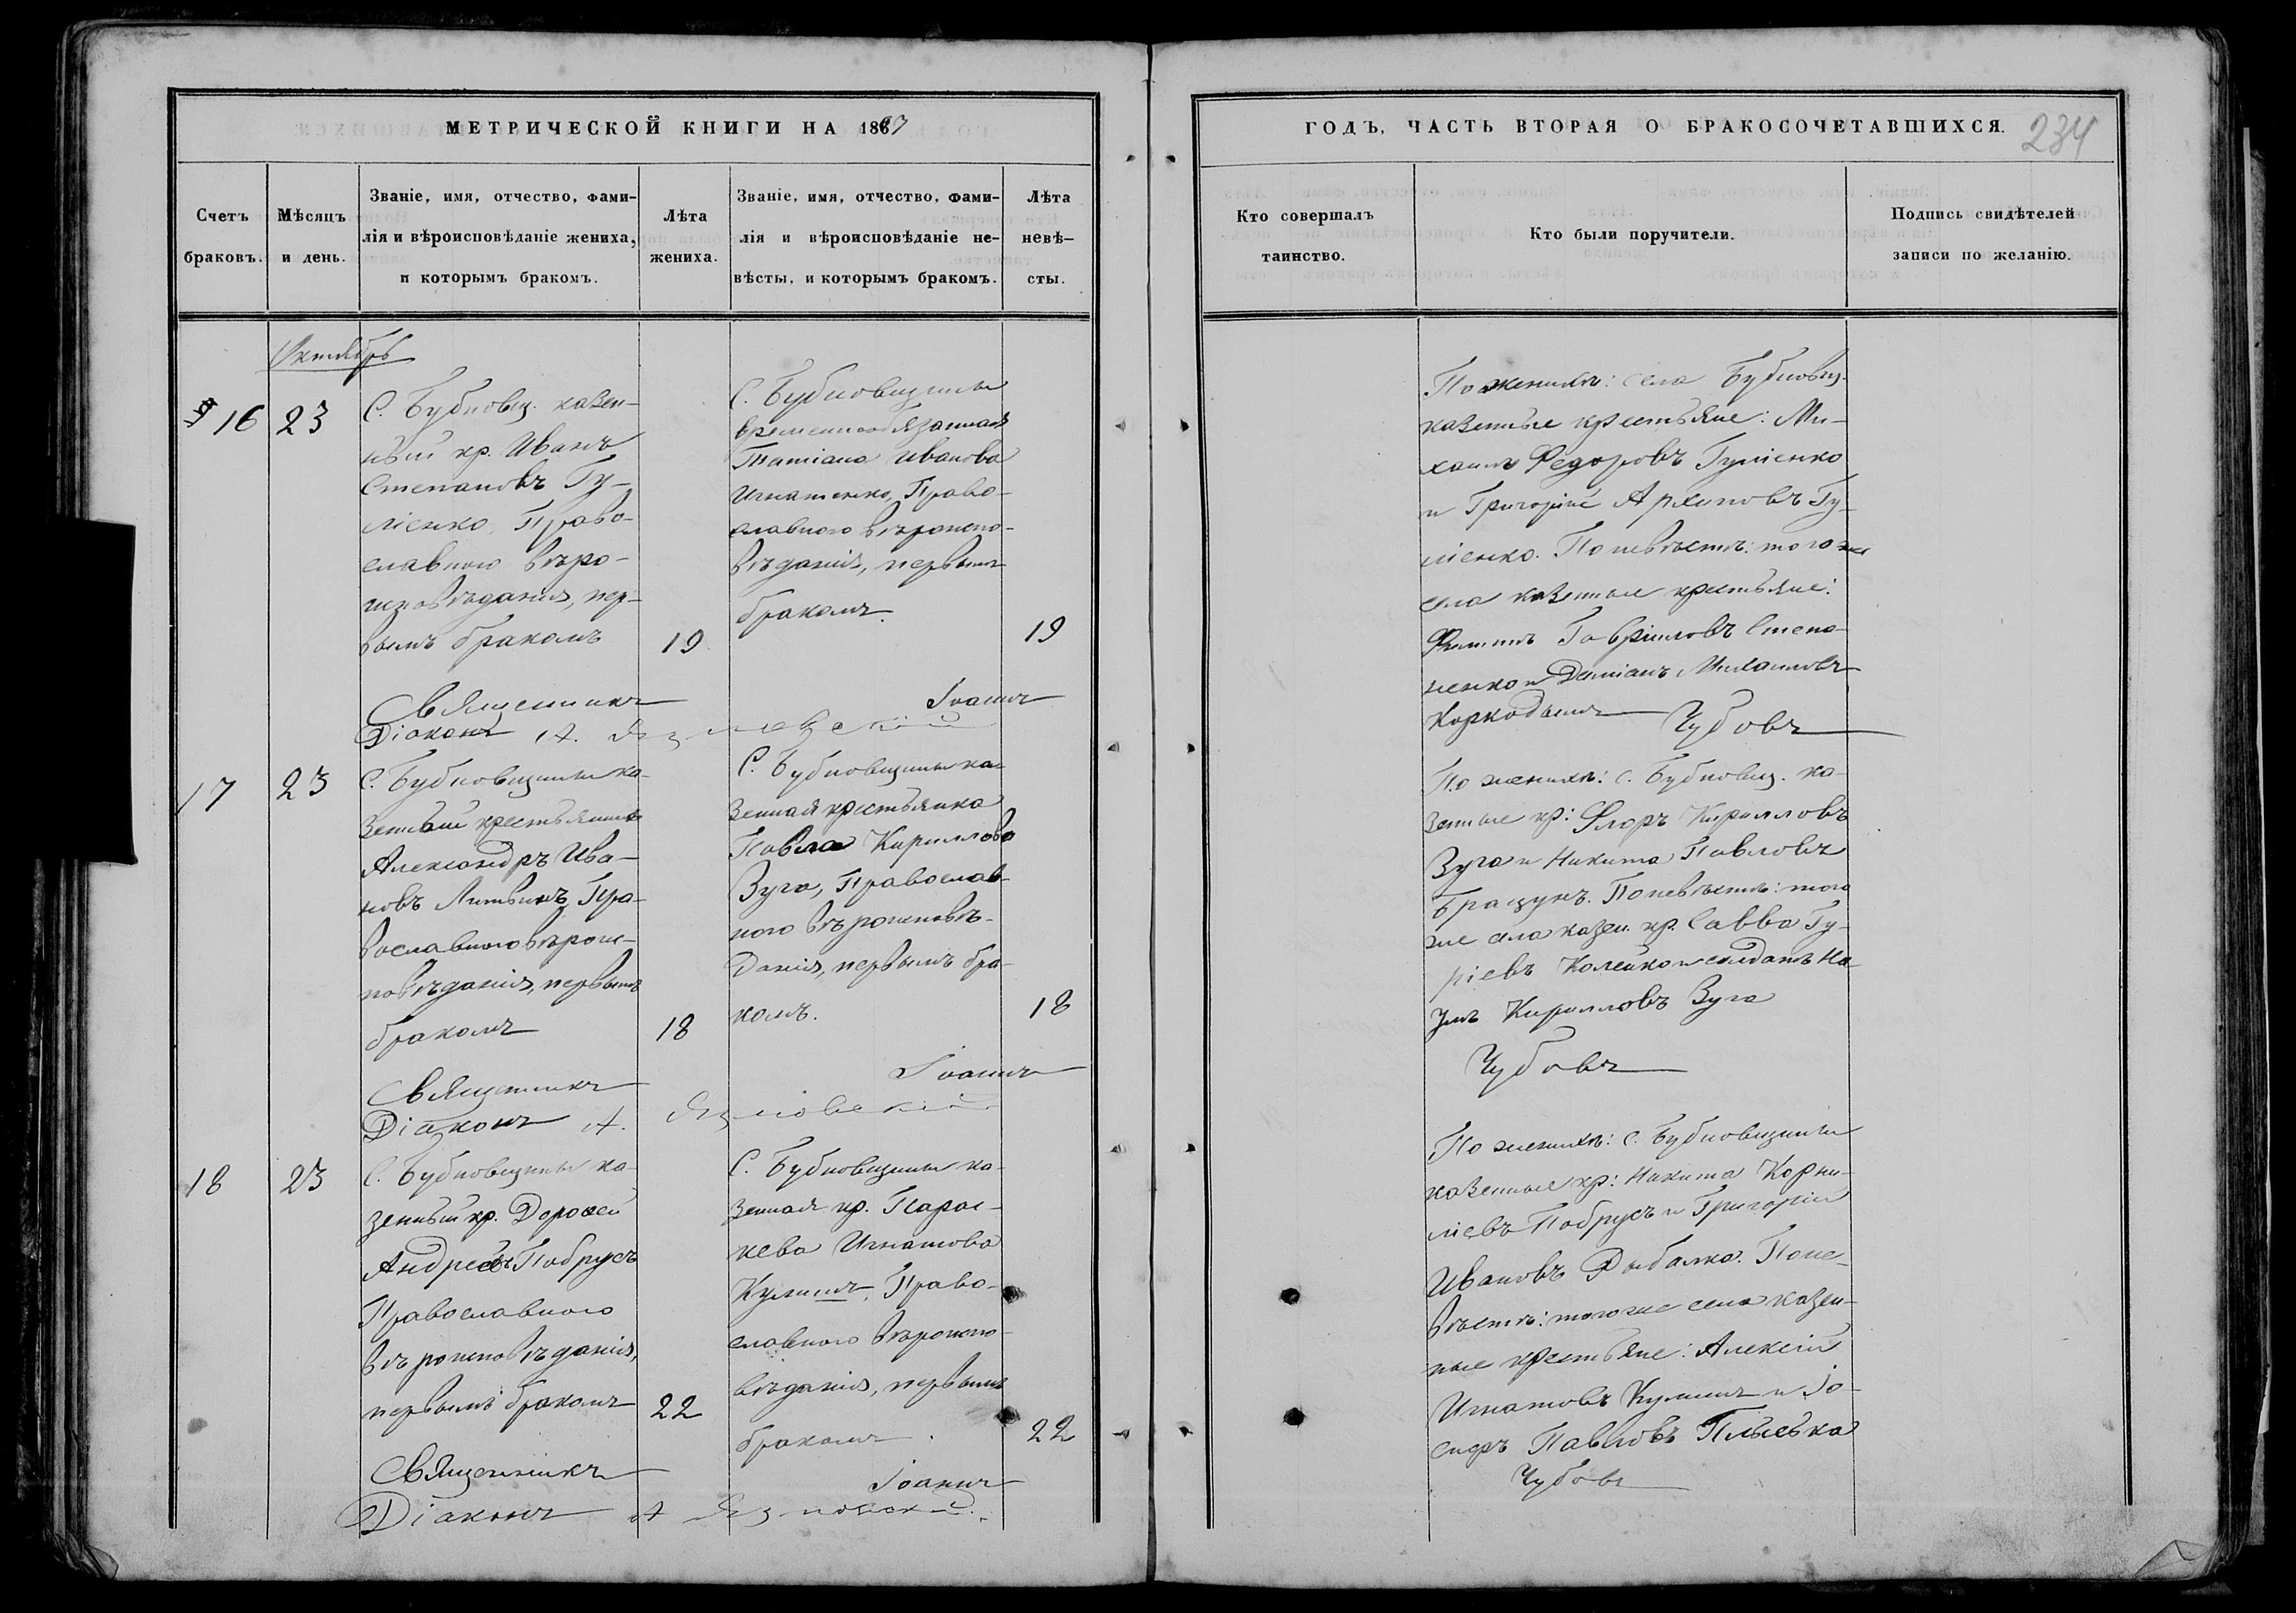 МЕТРИЧЕСКОЙ КНИГИ НА 1867
ГОДЪ, ЧАСТЬ ВТОРАЯ О БРАКОСОЧЕТАВШИХСЯ.
234
Счетъ
браковъ.
Мѣсяцъ
и день.
Званіе, имя, отчество, фами-
лія и вѣроисповѣданіе жениха,
и которымъ бракомъ.
Лѣта
жениха.
Званіе, имя, отчество, фами-
лія и вѣроисповѣданіе не-
вѣсты, и которымъ бракомъ.
Лѣта
невѣ-
сты.
Кто совершалъ
таинство.
Кто были поручители.
Подпись свидѣтелей
записи по желанію.
Октябрь
16
23
С. Бубновщ. казен-
ный кр. Иванъ
Степановъ Гу-
ліенко, Право-
славного вѣро-
исповѣданія, пер-
вымъ бракомъ
19
С. Бубновщины
временнообязанная
Татіана Иванова
Игнатенко, Право-
славного вѣроиспо-
вѣданія, первымъ
бракомъ.
19
По женихѣ: села Бубновщ.
казенные крестьяне: Ми-
хаилъ Федоровъ Гуліенко
и Григорій Архиповъ Гу-
ліенко. По невѣстѣ: того же
села казенные крестьяне:
Филиппъ Гавріиловъ Степа-
ненко и Даміанъ Михаиловъ
Коркодымъ
Священникъ Іоаннъ Чубовъ
Діаконъ А.
17
23
С. Бубновщины ка-
зенный крестьянинъ
Александръ Ива-
новъ Литвинъ, Пра-
вославного вѣроис-
повѣданія, первымъ
бракомъ
18
С. Бубновщины ка-
зенная крестьянка
Павла Кириллова
Зуга, Православ-
ного вѣроисповѣ-
данія, первымъ бра-
комъ.
18
По женихѣ: с. Бубновщ. ка-
зенные кр: Флоръ Кирилловъ
Зуга и Никита Павловъ
Брацунъ. По невѣстѣ: того
же села казен. кр. Савва Гу-
ріевъ Колейко и солдатъ На-
умъ Кирилловъ Зуга
Священникъ Іоаннъ Чубовъ
Діаконъ А.
18
23
С. Бубновщины ка-
зенный кр. Дорофей
Андреевъ Побрусъ
Православного
вѣроисповѣданія,
первымъ бракомъ
22
С. Бубновщины ка-
зенная кр. Парас-
кева Игнатова
Кулишъ, Право-
славного вѣроиспо-
вѣданія, первымъ
бракомъ.
22
По женихѣ: с. Бубновщины
казенные кр: Никита Корни-
ліевъ Побрусъ и Григорій
Ивановъ Рыбалка. По не-
вѣстѣ: того же села казен-
ные крестьяне: Алексій
Игнатовъ Кулишъ и Іо-
сифъ Павловъ
Священникъ Іоаннъ Чубовъ
Діаконъ А